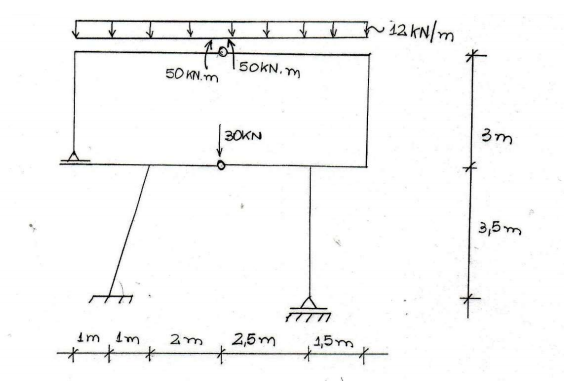 12 kN/m
50 kN.m
50 kN.m
30 KN
3 m
3,5 m
1 m
1 m
2 m
2,5 m
1,5 m